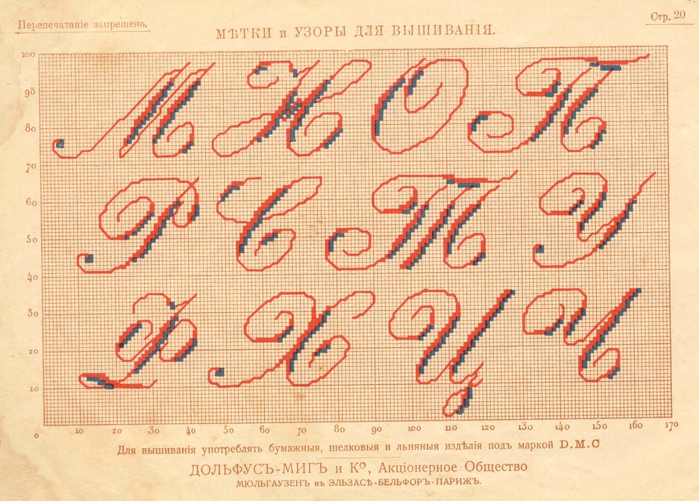 Перепечатаніе запрещено.
Стр. 20
МѢТКИ и УЗОРЫ ДЛЯ ВЫШИВАНІЯ.
100
90
80
70
60
50
40
30
20
10
М Н О П
Р С Т У
Ф Х Ц Ч
0 10 20 30 40 50 60 70 80 90 100 110 120 130 140 150 160 170
Для вышиванія употреблять бумажныя, шелковыя и льняныя издѣлія подъ маркой D.M.C
ДОЛЬФУСЪ-МИГЪ и Кº, Акціонерное Общество
МЮЛЬГАУЗЕНЪ въ ЭЛЬЗАСѢ-БЕЛЬФОРЪ-ПАРИЖЪ.